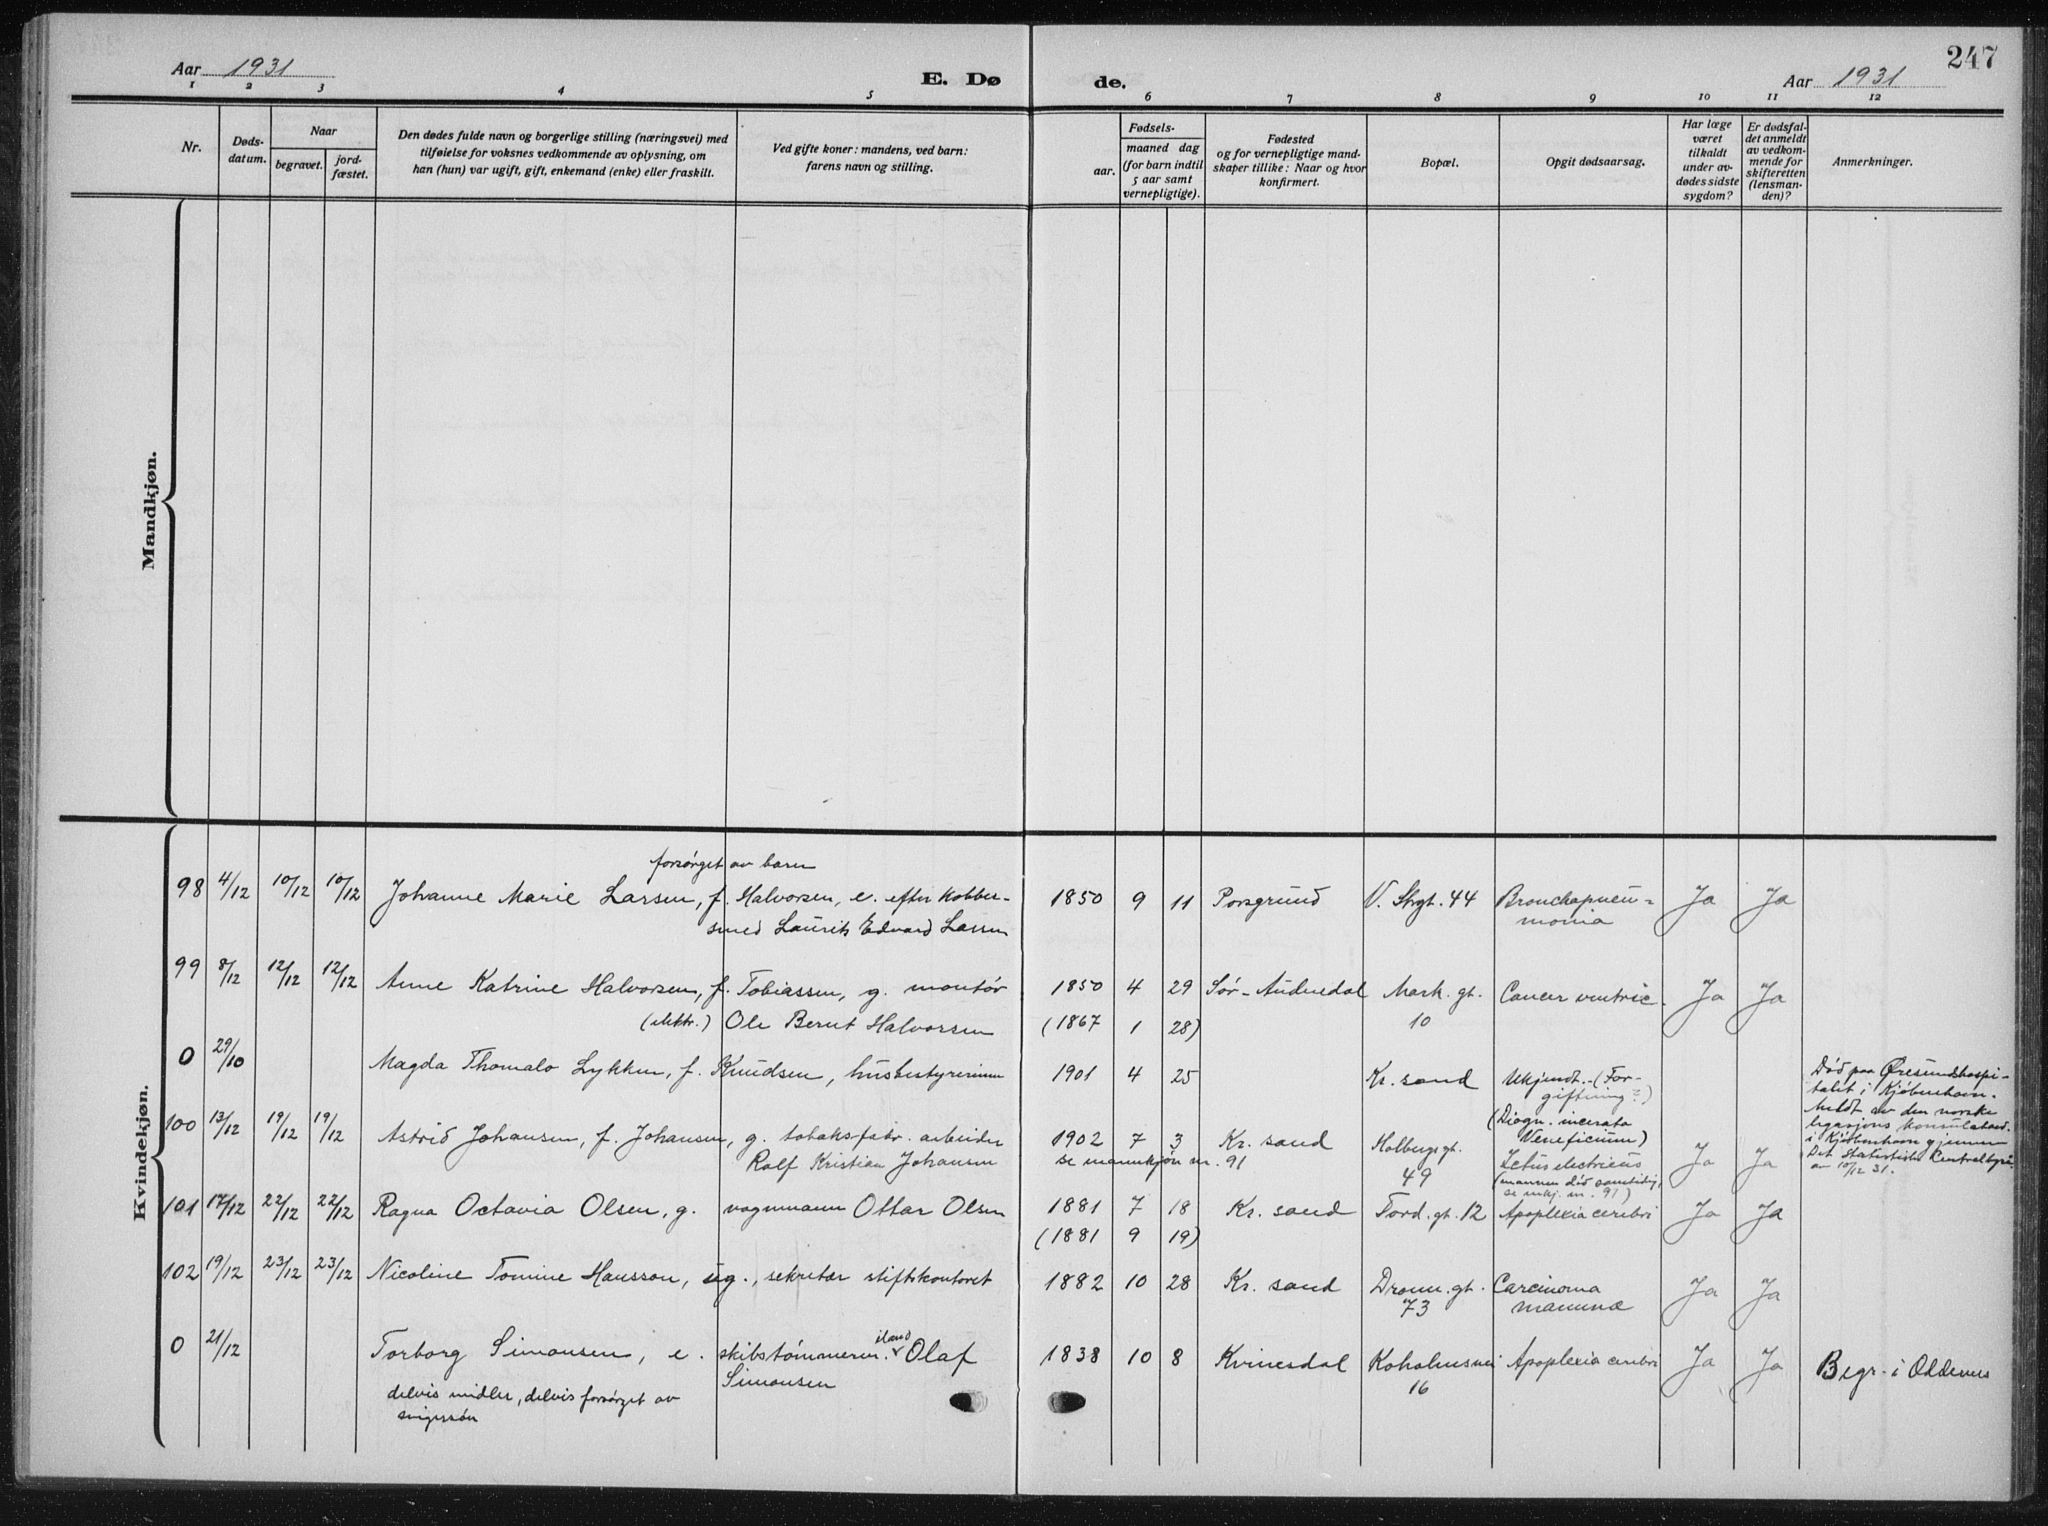 247
Aar 1931
E. Dø
de.
Aar 1931
1 2 3 4 5 6 7 8 9 10 11 12
Nr.
Døds-
datum.
Naar
begravet.
jord-
fæstet.
Den dødes fulde navn og borgerlige stilling (næringsvei) med
tilføielse for voksnes vedkommende av oplysning, om
han (hun) var ugift, gift, enkemand (enke) eller fraskilt.
Ved gifte koner: mandens, ved barn:
farens navn og stilling.
aar.
Fødsels-
maaned dag
(for barn indtil
5 aar samt
vernepligtige).
Fødested
og for vernepligtige mand-
skaper tillike: Naar og hvor
konfirmert.
Bopæl.
Opgit dødsaarsag.
Har læge
været
tilkaldt
under av-
dødes sidste
sygdom?
Er dødsfal-
det anmeldt
av vedkom-
mende for
skifteretten
(lensman-
den)?
Anmerkninger.
Mandkjøn.
Kvindekjøn.
forsørget av barn
98 4/12 10/12 10/12 Johanne Marie Larsen, f. Halvorsen, e. efter kobber- 1850 9 11 Porsgrund V. Strgt. 44 Bronchopneu= Ja Ja
smed Laurits Edvard Larsen monia
99 8/12 12/12 12/12 Anne Katrine Halvorsen, f. Tobiassen, g. montør 1850 4 29 Sør-Audnedal Mark. gt. Cancer ventric. Ja Ja
(elektr.) Ole Bernt Halvorsen (1867 1 28) 10
0 29/10 Magda Thomalo Lykken, f. Knudsen, husbestyrerinne 1901 4 25 Kr. sand Ukjendt. (For-
giftning?)
(Diogn. incerata
Veneficium)
Død paa Øresundshospi-
talet i Kjøbenhavn.
Meldt av den norske
legasjons konsulatavd.
i Kjøbenhavn gjennem
Det Statistiske Centralbyrå
av 10/12 31.
100 13/12 19/12 19/12 Astrid Johansen, f. Johansen, g. tobaksfabr. arbeider 1902 7 3 Kr. sand Holbergs gt.
Rolf Kristian Johansen se mannkjøn nr. 91 49 Letus electricus Ja Ja
(mannen død samtidig,
se mkj. nr. 91)
101 17/12 22/12 22/12 Ragna Octavia Olsen, g. vognmann Ottar Olsen 1881 7 18 Kr. sand Tord. gt. 12 Apoplexia cerebri Ja Ja
(1881 9 19)
102 19/12 23/12 23/12 Nicoline Tomine Hansson, ug., sekretær stiftskontoret 1882 10 28 Kr. sand Dronn. gt. Carcinoma Ja Ja
73 mammæ
0 21/12 Torborg Simonsen, e. skibstømmerm. iland Olaf 1838 10 8 Kvinesdal Koholmsvei Apoplexia cerebri Ja Ja Begr. i Oddernes
Simonsen 16
delvis midler, delvis forsørget av
svigersøn